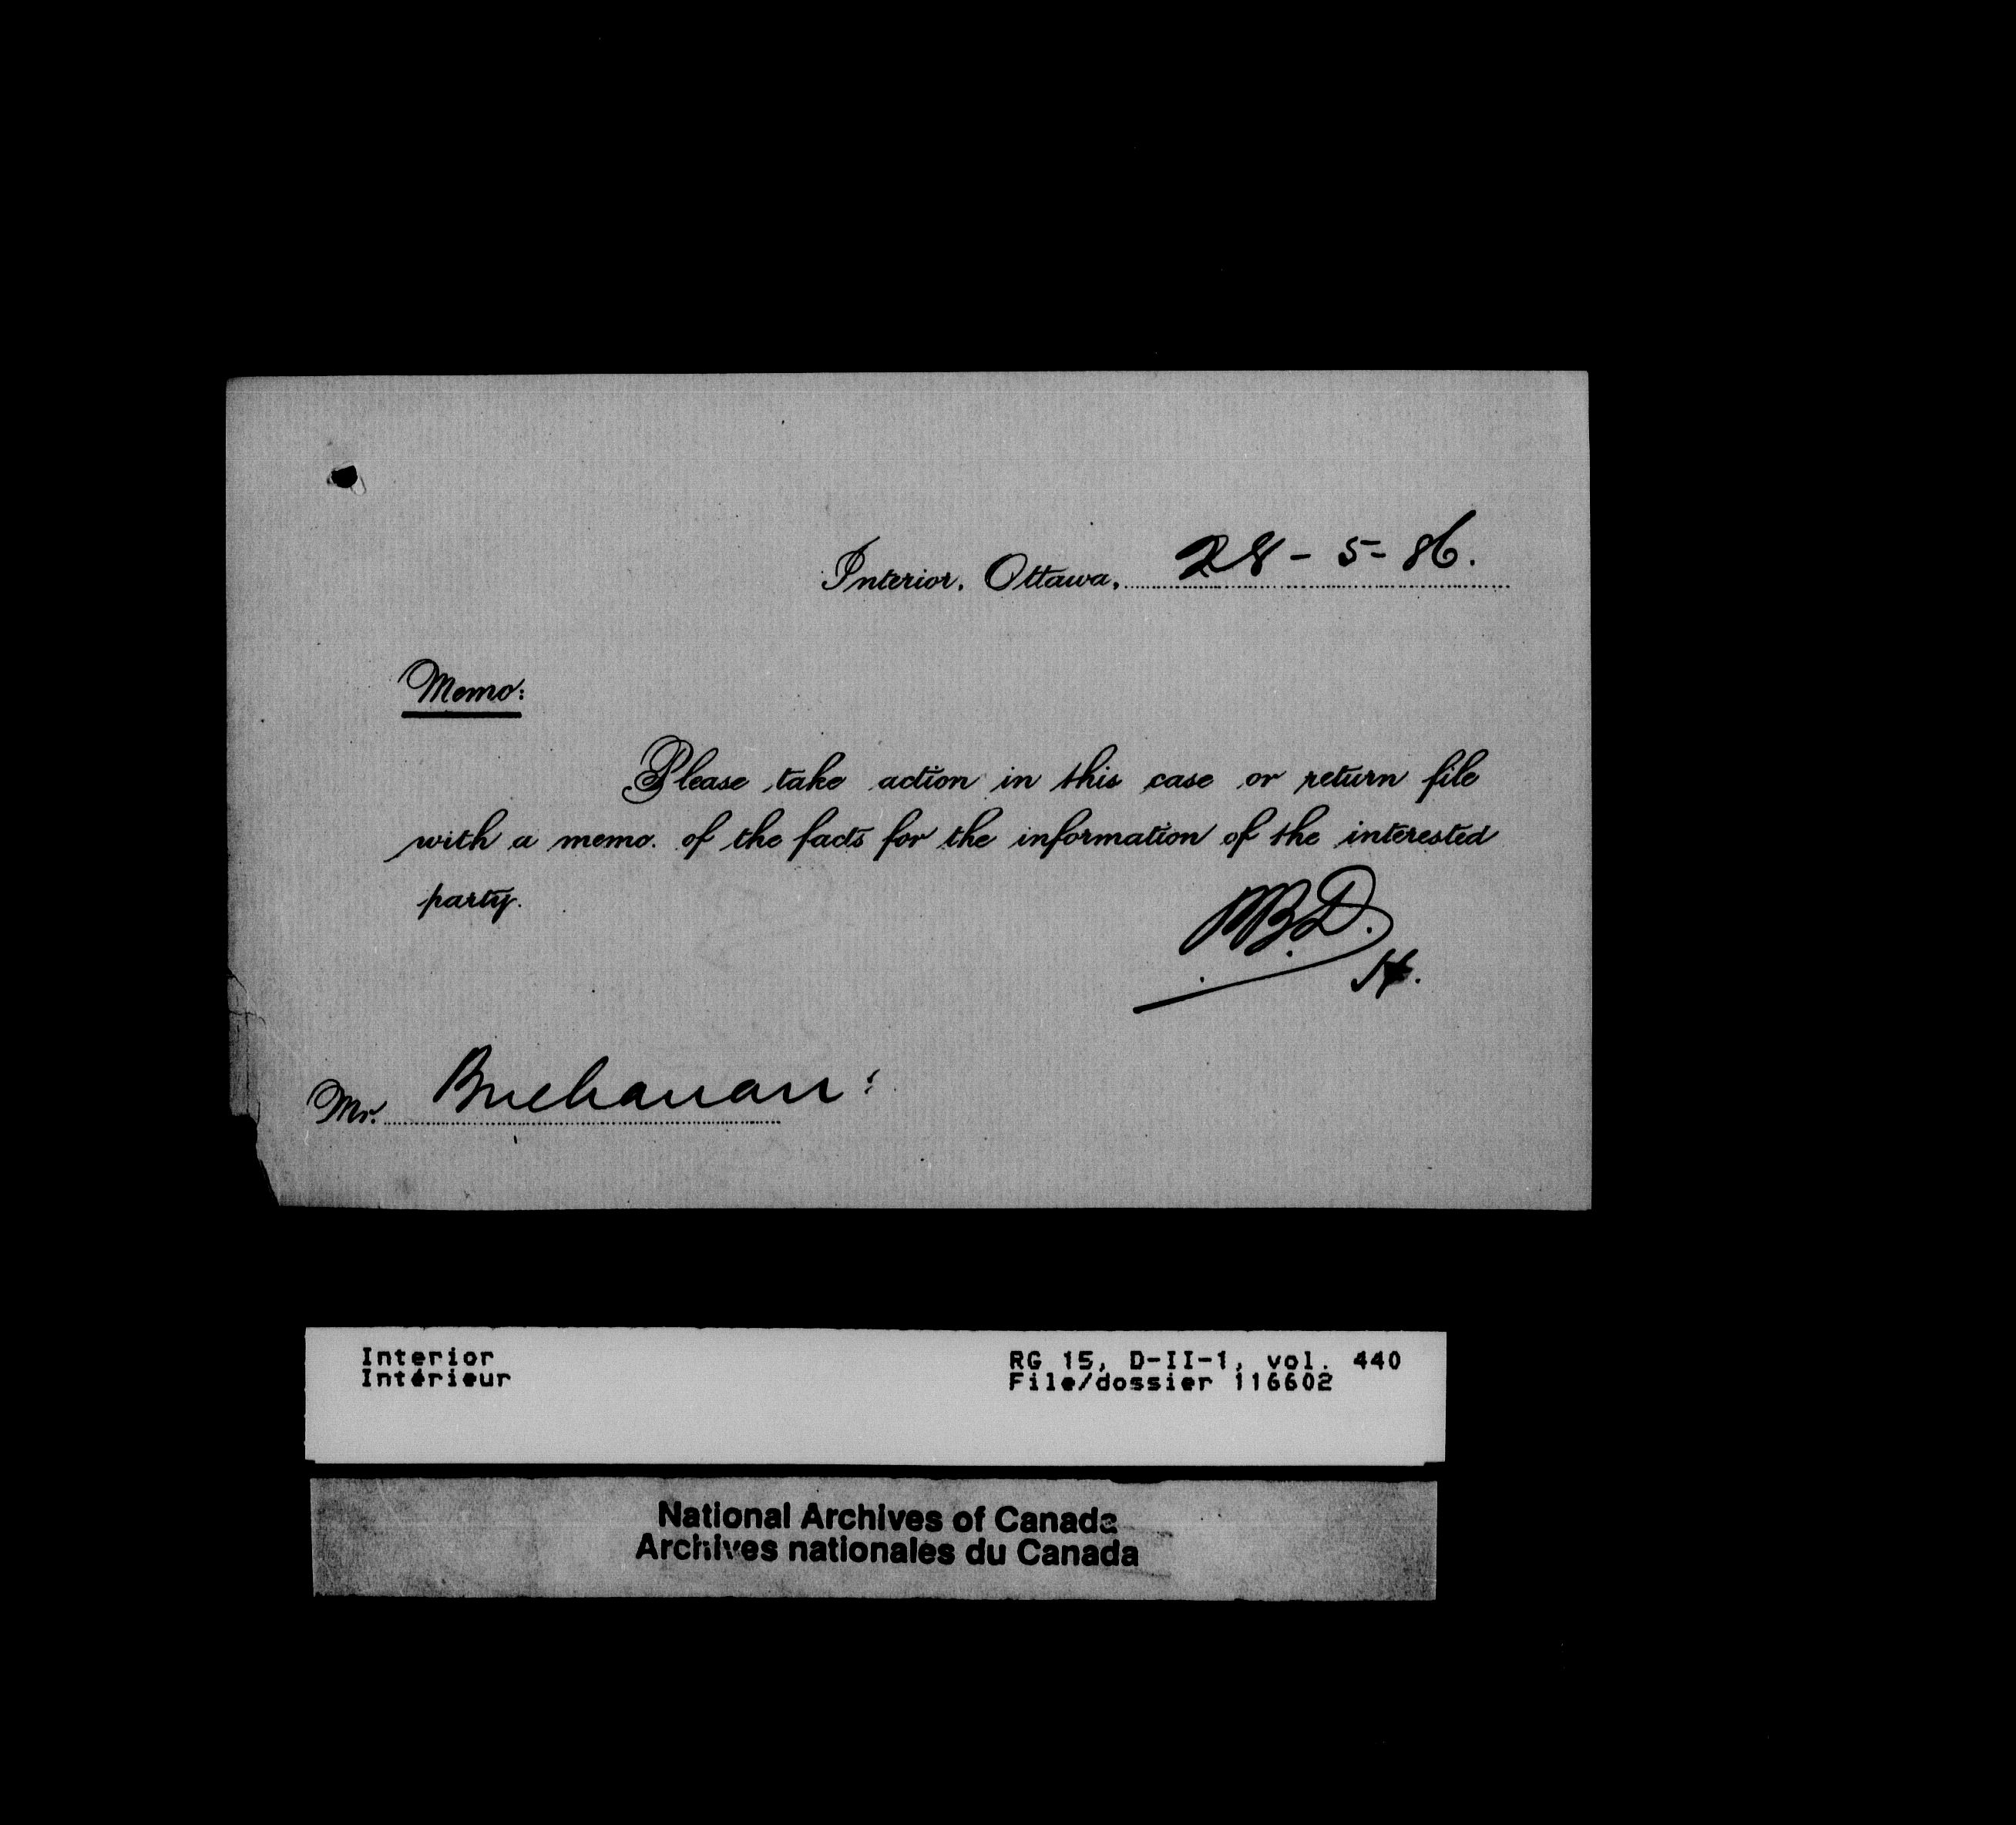 Interior, Ottawa, 28 - 5 - 86.
Memo:
Please take action in this case or return file
with a memo. of the facts for the information of the interested
party.
H.
Mr. Buchanan:
Interior
Intérieur
RG 15, D-II-1, vol. 440
File/dossier 116602
National Archives of Canada
Archives nationales du Canada